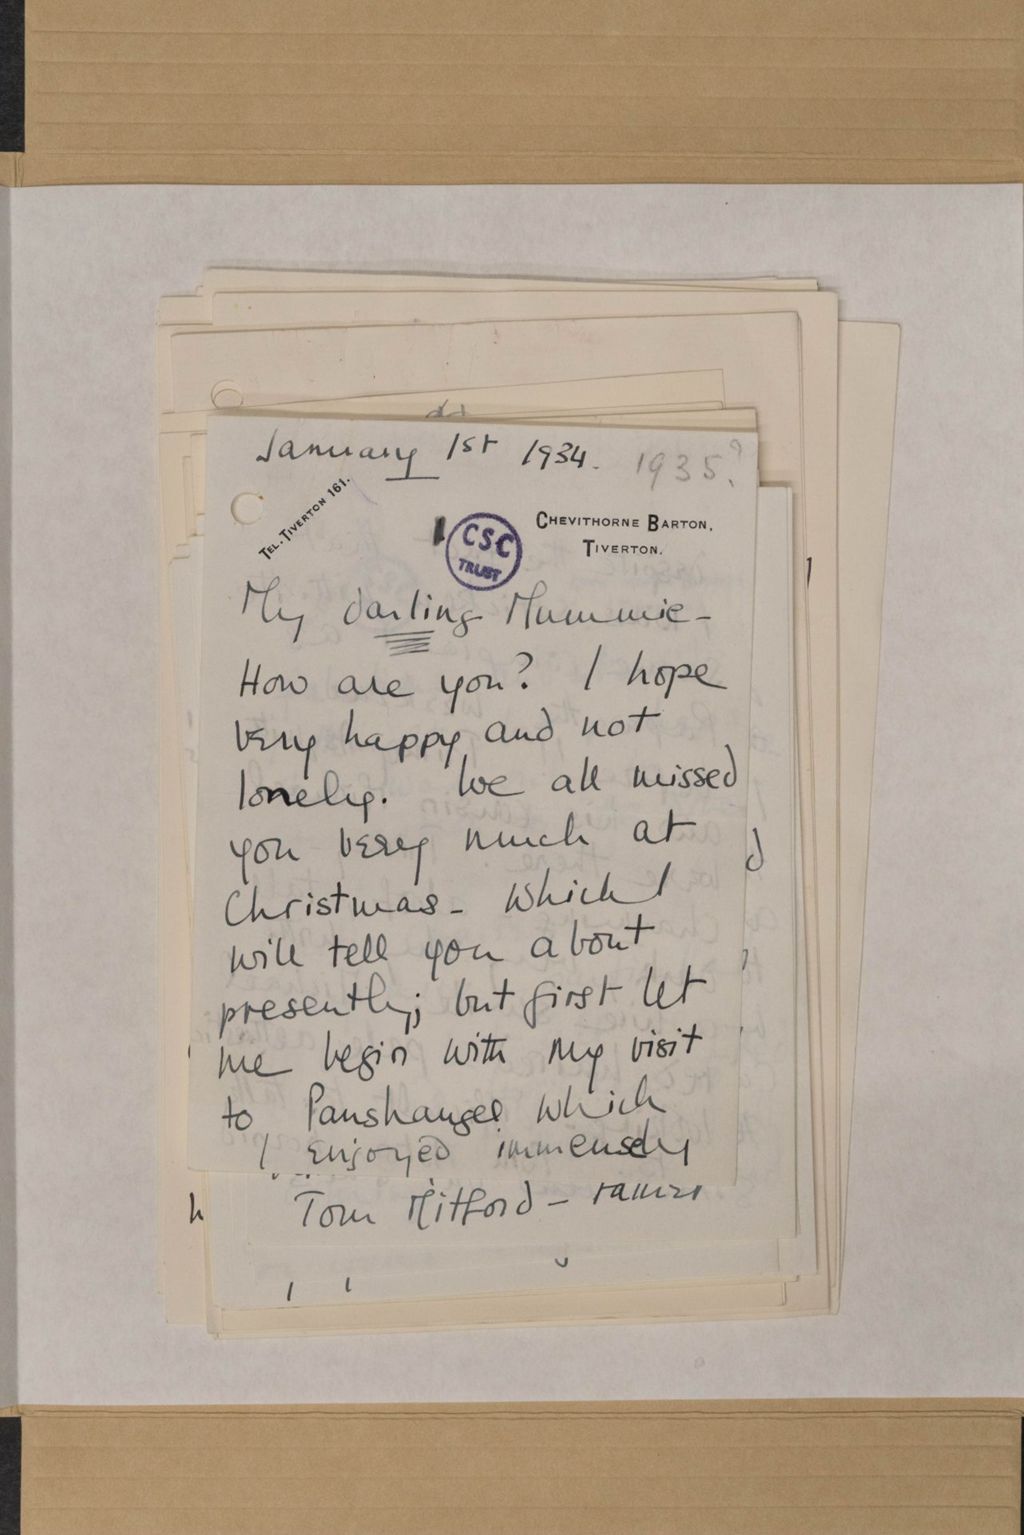 January 1st 1934. 1935?
TEL. TIVERTON 161.
CHEVITHORNE BARTON,
TIVERTON.
CSC
TRUST
My darling Mummie -
How are you? I hope
very happy and not
lonely. We all missed
you very much at
Christmas - which I
will tell you about
presently; but first let
me begin with my visit
to Panshanger which
I enjoyed immensely
Tom Mitford -